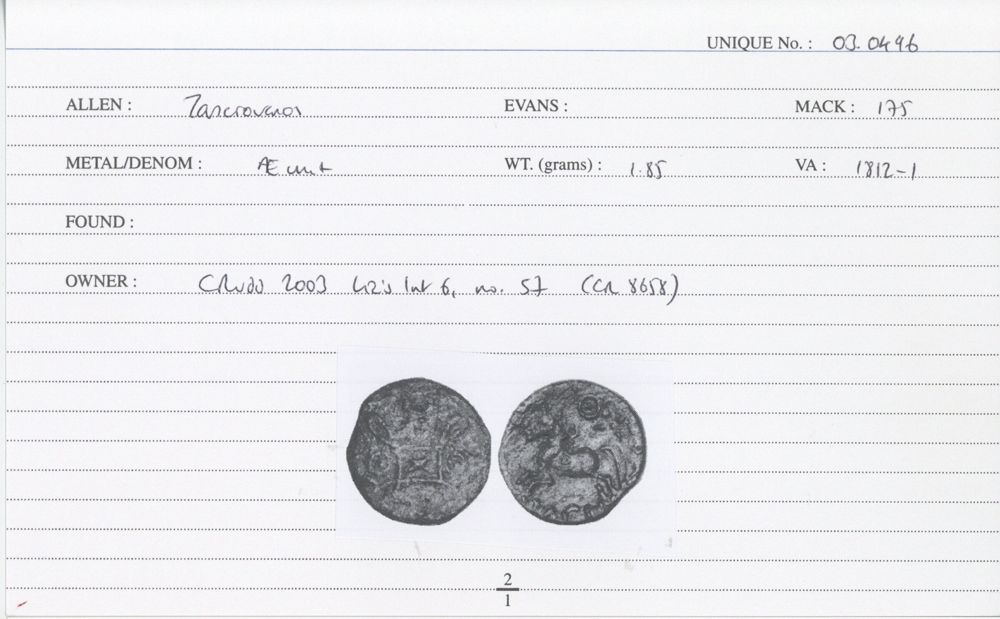 UNIQUE No. : 03.0496
ALLEN : Tasciovanos EVANS : MACK : 175
METAL/DENOM : Æ unit WT. (grams) : 1.85 VA : 1812-1
FOUND :
OWNER : 2003 Int 6, no. 57 (CR 8658)
2
1